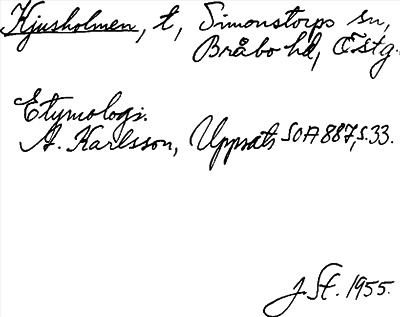 Kjusholmen, t, Simonstorps sn,
Bråbo hd, Östg.
Etymologi.
A. Karlsson, Uppsats SOA 887, s. 33.
J. St. 1955.